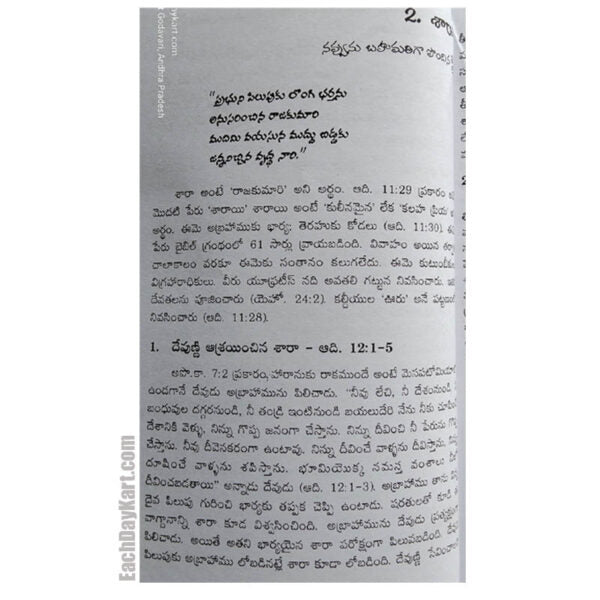 2. శారా
నవ్వును బహుమతిగా పొందిన
"ప్రభుని పిలుపుకు లొంగి భర్తను
అనుసరించిన రాజకుమారి
ముదిమి వయసున ముద్దు బిడ్డకు
జన్మనిచ్చిన వృద్ధ నారి."
శారా అంటే 'రాజకుమారి' అని అర్థం. ఆది. 11:29 ప్రకారం
మొదటి పేరు 'శారాయి' శారాయి అంటే 'కులీనమైన' లేక 'కలహ ప్రియ
అర్థం. ఈమె అబ్రాహాముకు భార్య; తెరహుకు కోడలు (ఆది. 11:30)
పేరు బైబిల్ గ్రంథంలో 61 సార్లు వ్రాయబడింది. వివాహం అయిన
చాలాకాలం వరకూ ఈమెకు సంతానం కలుగలేదు. ఈమె
విగ్రహారాధికులు. వీరు యూఫ్రటీస్ నది అవతలి గట్టున నివసించారు.
దేవతలను పూజించారు (యెహో. 24:2). కల్దీయుల 'ఊరు' అనే
నివసించారు (ఆది. 11:28).
1. దేవుణ్ణి ఆశ్రయించిన శారా - ఆది. 12:1-5
అపొ.కా. 7:2 ప్రకారం, హారానుకు రాకముందే అంటే
ఉండగానే దేవుడు అబ్రాహామును పిలిచాడు. "నీవు లేచి, నీ దేశంనుండి
బంధువుల దగ్గరనుండి, నీ తండ్రి ఇంటినుండి బయలుదేరి నేను నీకు
దేశానికి వెళ్ళు, నిన్ను గొప్ప జనంగా చేస్తాను. నిన్ను దీవించి నీ పేరును
చేస్తాను. నీవు దీవెనకరంగా ఉంటావు. నిన్ను దీవించే వాళ్ళను దీవిస్తాను,
దూషించే వాళ్ళను శపిస్తాను. భూమియొక్క సమస్త వంశాలు
దీవించబడతాయి" అన్నాడు దేవుడు (ఆది. 12:1-3). అబ్రాహాము తాను
దైవ పిలుపు గురించి భార్యకు తప్పక చెప్పి ఉంటాడు. షరతులతో కూడి
వాగ్దానాన్ని శారా కూడ విశ్వసించింది. అబ్రాహామును దేవుడు
పిలిచాడు. అయితే అతని భార్యయైన శారా పరోక్షంగా పిలువబడింది.
పిలుపుకు అబ్రాహాము లోబడినట్లే శారా కూడా లోబడింది. దేవుణ్ణి
EachDayKart.com
Godavari, Andhra Pradesh